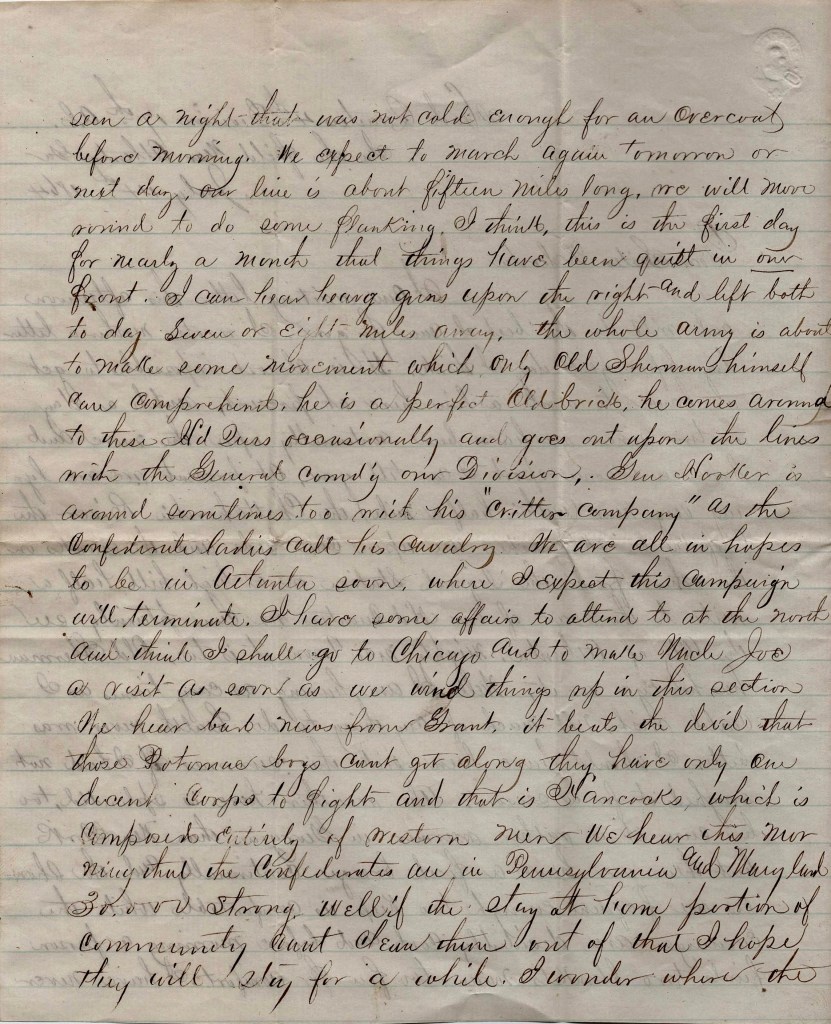 seen a night that was not cold enough for an overcoat
before morning. We expect to march again tomorrow or
next day, our line is about fifteen miles long, we will move
round to do some flanking. I think, this is the first day
for nearly a month that things have been quiet in our
front. I can hear heavy guns upon the right and left both
to day seven or eight miles away, the whole army is about
to make some movement which only Old Sherman himself
can comprehend, he is a perfect Old brick, he comes around
to these Hd Qurs occasionally and goes out upon the lines
with the General comd'g our Division,. Gen Hooker is
around sometimes too with his "critter company" as the
Confederate ladies call his cavalry We are all in hopes
to be in Atlanta soon, where I expect this campaign
will terminate. I have some affairs to attend to at the north
and think I shall go to Chicago and to make Uncle Joe
a visit as soon as we wind things up in this section
We hear bad news from Grant, it beats the devil that
those Potomac boys cant get along they have only one
decent corps to fight and that is Hancocks, which is
composed entirely of western men We hear this mor
ning that the Confederates are in Pennsylvania and Maryland
30,000 strong, well if the stay at home portion of
community cant clean them out of that I hope
they will stay for a while. I wonder where the